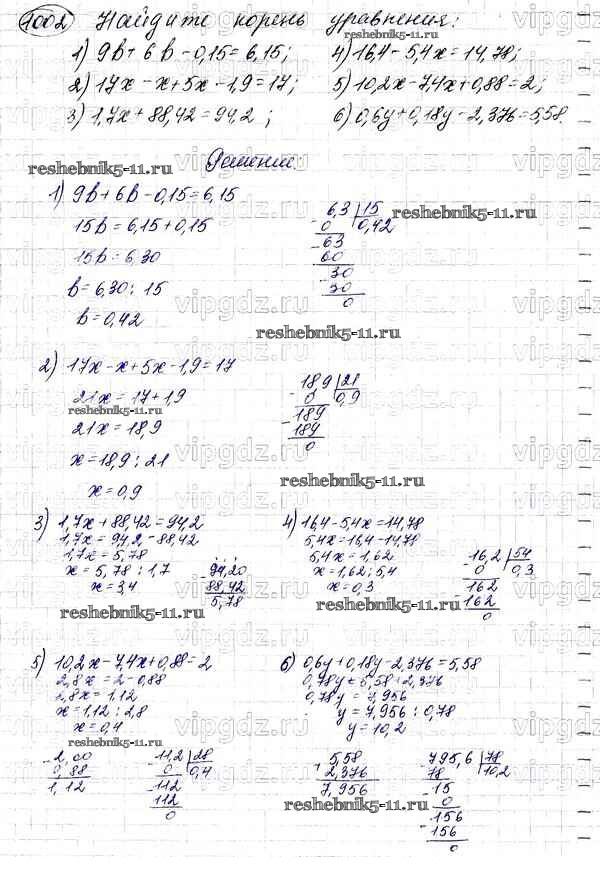 1002 Найдите корень уравнения:
1) 9b + 6b - 0,15 = 6,15; 4) 16,4 - 5,4x = 14,78;
2) 17x - x + 5x - 1,9 = 17; 5) 10,2x - 7,4x + 0,88 = 2;
3) 1,7x + 88,42 = 94,2; 6) 0,6y + 0,18y - 2,376 = 5,58.
Решение.
reshebnik5-11.ru
1) 9b + 6b - 0,15 = 6,15
15b = 6,15 + 0,15
15b = 6,30
b = 6,30 : 15
b = 0,42
6,3 | 15
- 0 | 0,42
- 63
60
- 30
30
0
reshebnik5-11.ru
reshebnik5-11.ru
2) 17x - x + 5x - 1,9 = 17
21x = 17 + 1,9
reshebnik5-11.ru
21x = 18,9
x = 18,9 : 21
x = 0,9
18,9 | 21
- 0 | 0,9
- 189
189
0
reshebnik5-11.ru
3) 1,7x + 88,42 = 94,2
1,7x = 94,2 - 88,42
1,7x = 5,78
x = 5,78 : 1,7
x = 3,4
- 94,20
88,42
5,78
reshebnik5-11.ru
4) 16,4 - 5,4x = 14,78
5,4x = 16,4 - 14,78
5,4x = 1,62
x = 1,62 : 5,4
x = 0,3
- 16,2 | 54
0 | 0,3
- 162
162
0
reshebnik5-11.ru
5) 10,2x - 7,4x + 0,88 = 2
2,8x = 2 - 0,88
2,8x = 1,12
x = 1,12 : 2,8
x = 0,4
reshebnik5-11.ru
- 2,00
0,88
1,12
- 11,2 | 28
0 | 0,4
- 112
112
0
6) 0,6y + 0,18y - 2,376 = 5,58
0,78y = 5,58 + 2,376
0,78y = 7,956
y = 7,956 : 0,78
y = 10,2
+ 5,58
2,376
7,956
- 795,6 | 78
78 | 10,2
- 15
0
- 156
156
0
reshebnik5-11.ru
vipgdz.ru